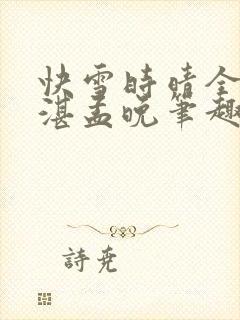 快雪時晴全
湛孟晚筆趣
詩尭